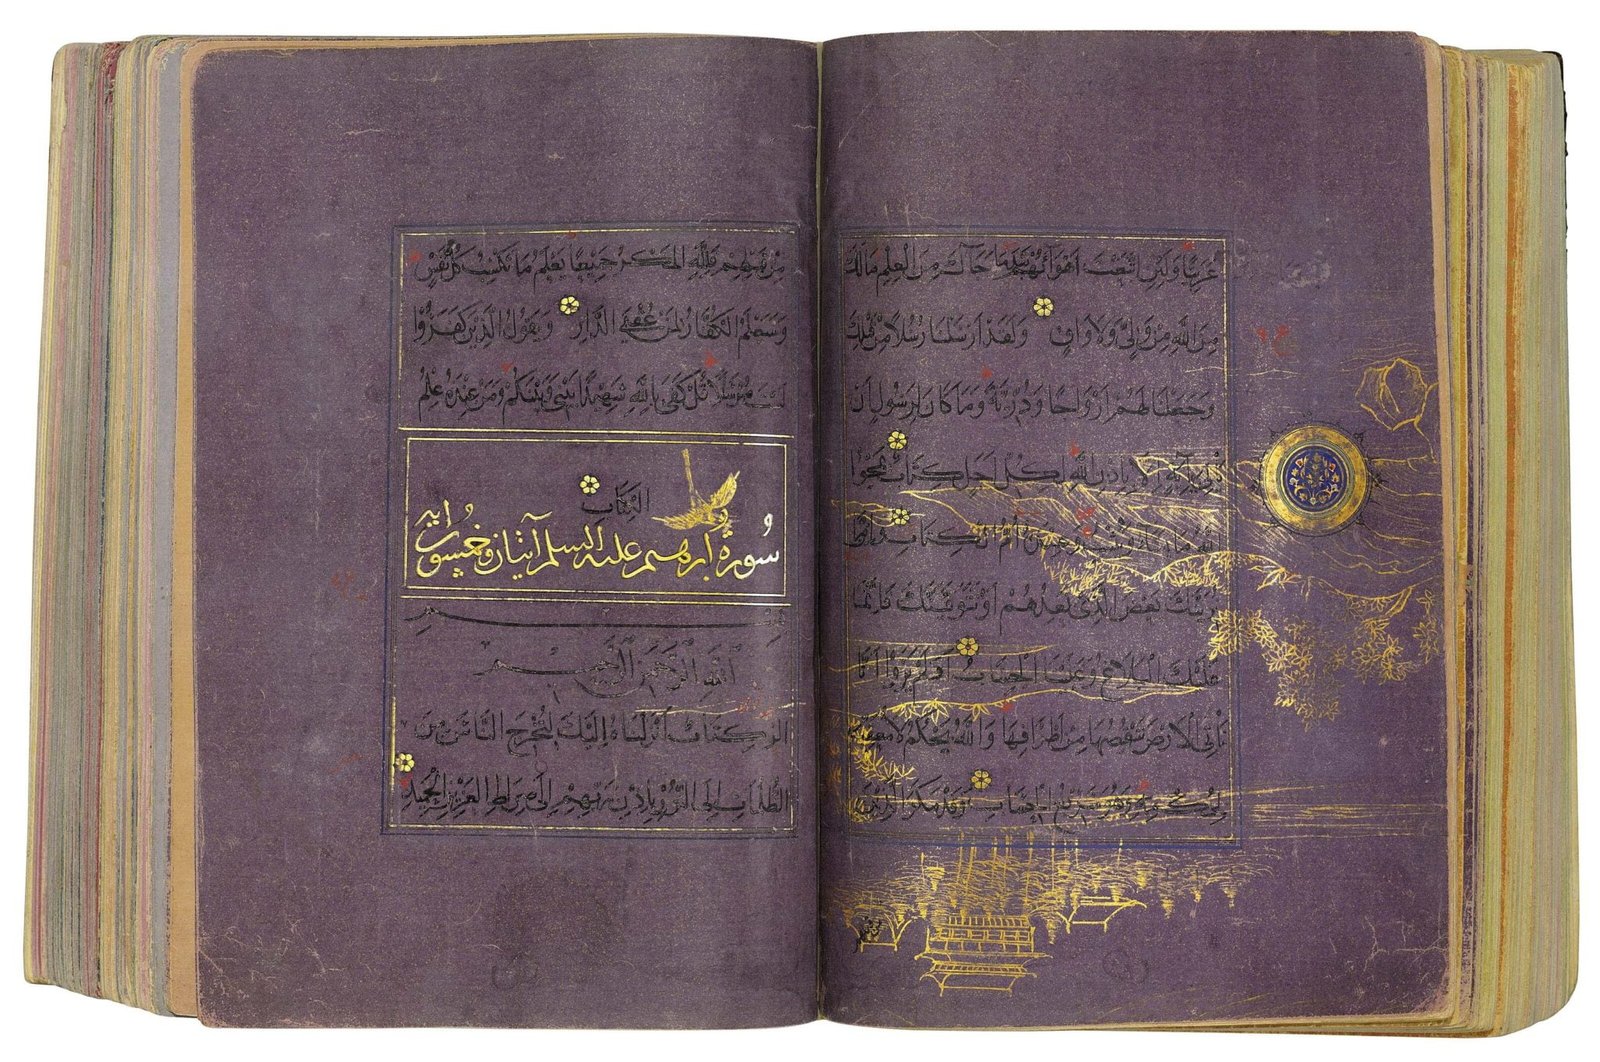 عَرَبِيًّا وَلَئِنِ اتَّبَعْتَ اَهْوَآءَهُمْ بَعْدَ مَا جَآءَكَ مِنَ الْعِلْمِ مَالَكَ
مِنَ اللهِ مِنْ وَلِيٍّ وَلَا وَاقٍ وَلَقَدْ اَرْسَلْنَا رُسُلًا مِنْ قَبْلِكَ
وَجَعَلْنَا لَهُمْ اَزْوَاجًا وَذُرِّيَّةً وَمَا كَانَ لِرَسُولٍ اَنْ
يَأْتِيَ بِآيَةٍ اِلَّا بِاِذْنِ اللهِ لِكُلِّ اَجَلٍ كِتَابٌ يَمْحُوا
اللهُ مَا يَشَآءُ وَيُثْبِتُ وَعِنْدَهُ اُمُّ الْكِتَابِ وَاِنْ مَا
نُرِيَنَّكَ بَعْضَ الَّذِى نَعِدُهُمْ اَوْ نَتَوَفَّيَنَّكَ فَاِنَّمَا
عَلَيْكَ الْبَلَاغُ وَعَلَيْنَا الْحِسَابُ اَوَلَمْ يَرَوْا اَنَّا
نَأْتِى الْاَرْضَ نَنْقُصُهَا مِنْ اَطْرَافِهَا وَاللهُ يَحْكُمُ لَا مُعَقِّبَ
لِحُكْمِهِ وَهُوَ سَرِيعُ الْحِسَابِ وَقَدْ مَكَرَ الَّذِينَ
مِنْ قَبْلِهِمْ فَلِلّهِ الْمَكْرُ جَمِيعًا يَعْلَمُ مَا تَكْسِبُ كُلُّ نَفْسٍ
وَسَيَعْلَمُ الْكُفَّارُ لِمَنْ عُقْبَى الدَّارِ وَيَقُولُ الَّذِينَ كَفَرُوا
لَسْتَ مُرْسَلًا قُلْ كَفَى بِاللهِ شَهِيدًا بَيْنِى وَبَيْنَكُمْ وَمَنْ عِنْدَهُ عِلْمُ
الْكِتَابِ
سورة ابرهيم عليه السلم آيتان وخمسون آية
بسم
الله الرحمن الرحيم
الر كِتَابٌ اَنْزَلْنَاهُ اِلَيْكَ لِتُخْرِجَ النَّاسَ مِنَ
الظُّلُمَاتِ اِلَى النُّورِ بِاِذْنِ رَبِّهِمْ اِلَى صِرَاطِ الْعَزِيزِ الْحَمِيدِ